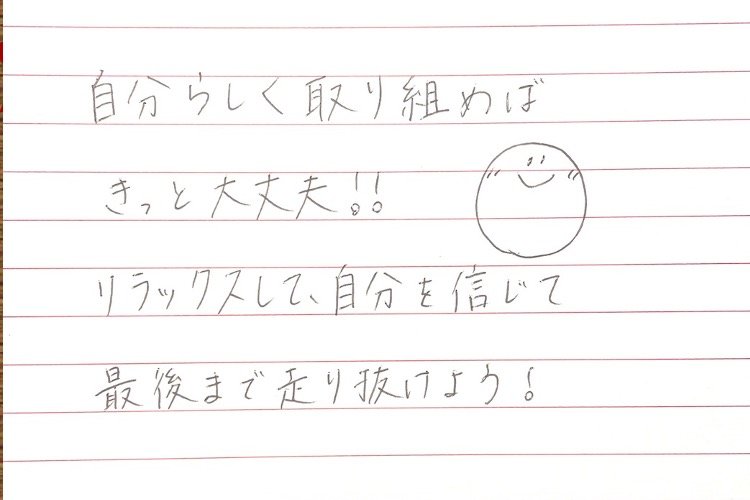 自分らしく取り組めば
きっと大丈夫!!
リラックスして、自分を信じて
最後まで走り抜けよう!